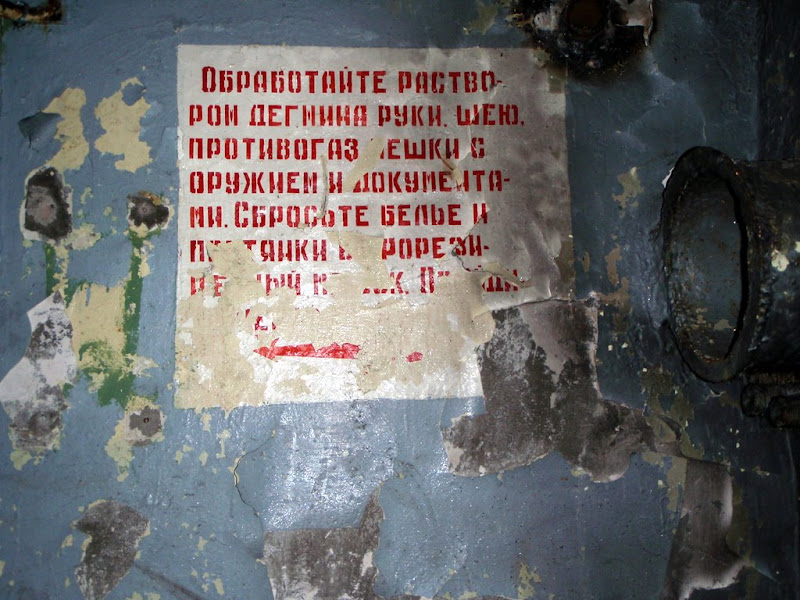 Обработайте раство-
ром дегмина руки, шею,
противогаз, мешки с
оружием и документа-
ми. Сбросьте белье и
в